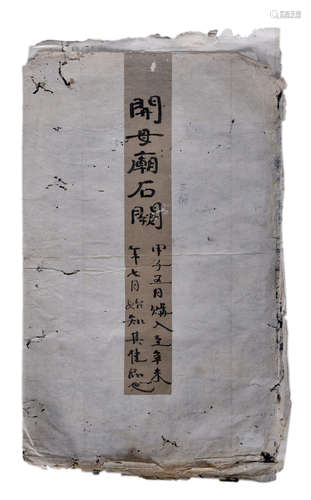 開母廟石闕
甲子五月購入至辛未
年七月始知其佳品也